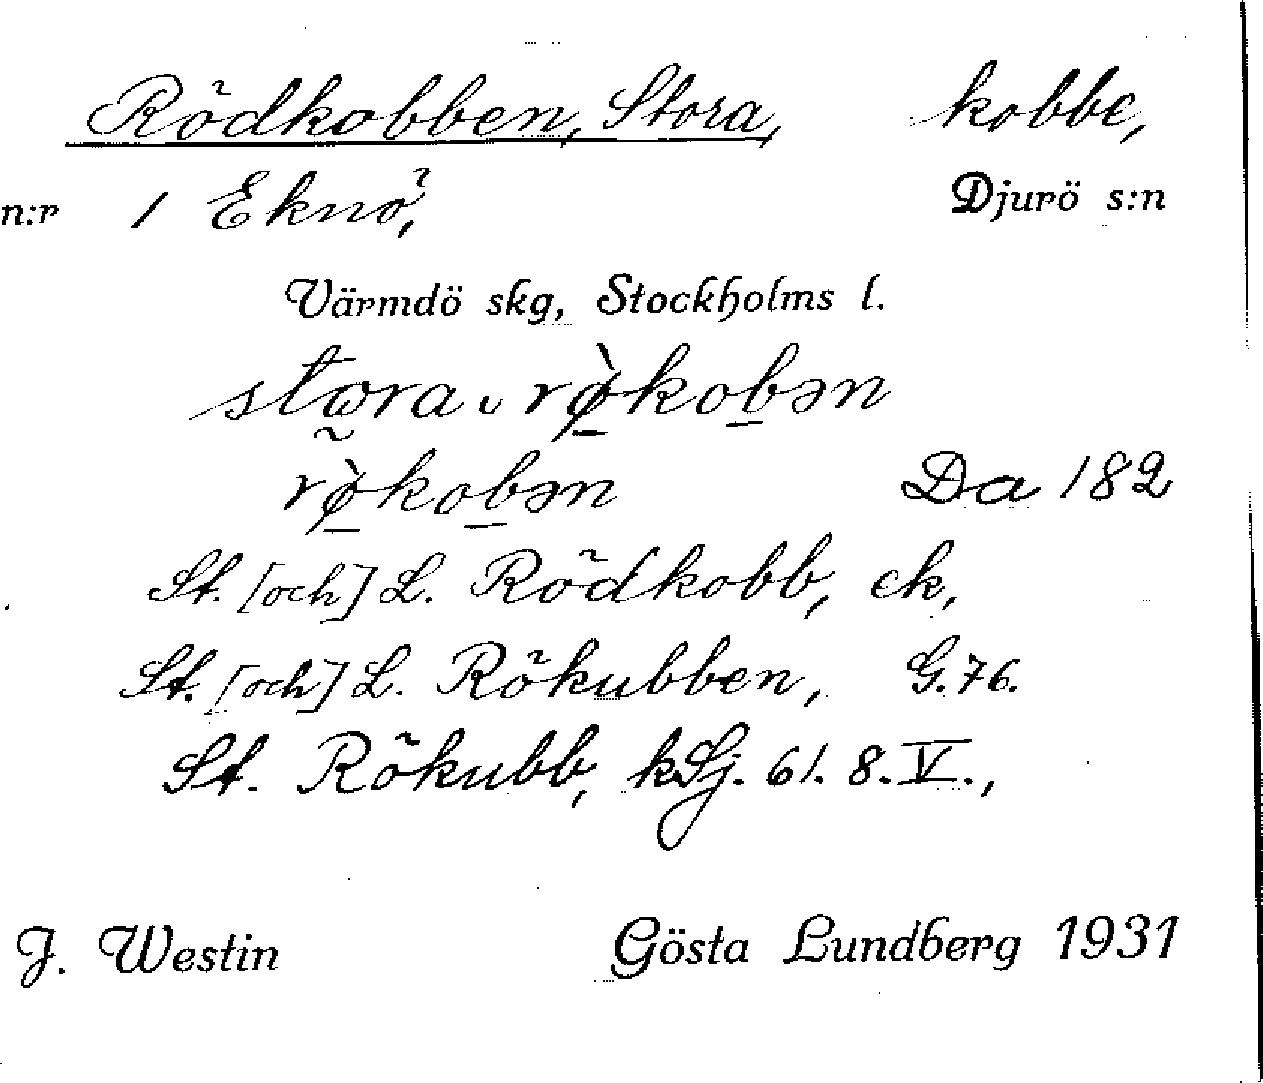 Rödkobben, Stora, kobbe,
n:r 1 Eknö, Djurö s:n
Värmdö skg, Stockholms l.
stɷra ˬ rø̠̀kob̠ən
rø̠̀kob̠ən Da 182
St. [och] L. Rödkobb, ek,
St. [och] L. Rökubben, G. 76.
St. Rökubb, kSj. 61. 8. V.,
J. Westin Gösta Lundberg 1931